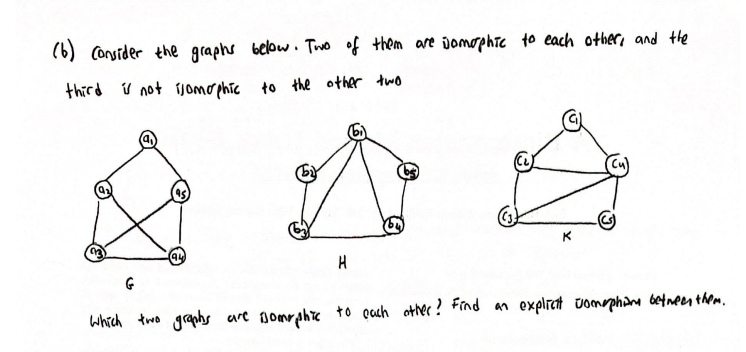 (b) Consider the graphs below. Two of them are isomorphic to each other, and the
third is not isomorphic to the other two
a1
a2
a5
a3
a4
G
b1
b2
b5
b3
b4
H
C1
C2
C4
C3
C5
K
Which two graphs are isomorphic to each other? Find an explicit isomorphism between them.